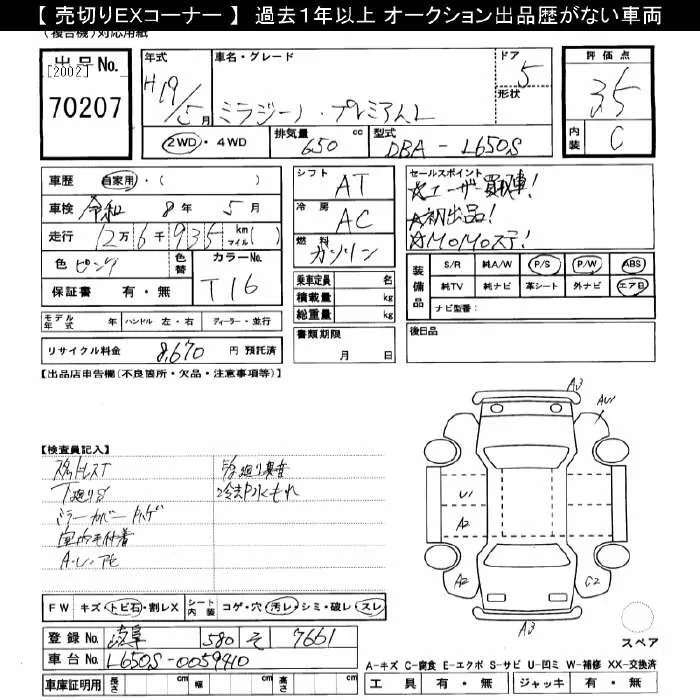 【 売切りEXコーナー 】 過去1年以上 オークション出品歴がない車両
(複合機)対応用紙
出品No.
[2002]
70207
年式
H19/5月
車名・グレード
ミラジーノ・プレミアムL
ドア
5
形状
評価点
3.5
内装
C
2WD・4WD
排気量
650 cc
型式
DBA-L650S
車歴 自家用・( )
車検 令和 8年 5月
走行 12万6千935 km マイル( )
色 ピンク
色替
カラーNo.
T16
保証書 有・無
モデル年式 年 ハンドル 左・右 ディーラー・並行
リサイクル料金 8,670 円 預託済
シフト
AT
冷房
AC
燃料
ガソリン
乗車定員 名
積載量 kg
総重量 kg
書類期限
月 日
セールスポイント
☆ユーザー買取車!
☆初出品!
☆MOMOステ!
装備品
S/R 純A/W P/S P/W ABS
純TV 純ナビ 革シート 外ナビ エアB
ナビ型番:
後日品
【出品店申告欄(不良箇所・欠品・注意事項等)】
【検査員記入】
下廻りサビ
ミラーカバー
車内毛付着
A・U・
廻り異音
冷却水もれ
A3
AU1
U1
A2
A2
C2
A3
FW キズ・トビ石・割レX シート内装 コゲ・穴・汚レ・シミ・破レ・スレ
登録No. 岐阜 580 そ 7661
車台No. L650S-0059410
車庫証明用 長さ cm 幅 cm 高さ cm
スペア
A-キズ C-腐食 E-エクボ S-サビ U-凹ミ W-補修 XX-交換済
工具 有・無 ジャッキ 有・無